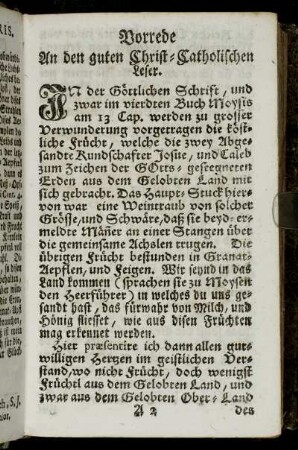 Vorrede
An den guten Christ-Catholischen
Leser.
IN der Göttlichen Schrift, und
zwar im vierdten Buch Moysis
am 13 Cap. werden zu grosser
Verwunderung vorgetragen die köst-
liche Frücht, welche die zwey Abge-
sandte Kundschafter Josue, und Caleb
zum Zeichen der GOtts-gesegneten
Erden aus dem Gelobten Land mit
sich gebracht. Das Haupt-Stuck hier-
von war eine Weintraub von solcher
Grösse, und Schwäre, daß sie beyd-er-
meldte Mäner an einer Stangen über
die gemeinsame Achslen trugen. Die
übrigen Frücht bestunden in Granat-
Aepflen, und Feigen. Wir seynd in das
Land kommen (sprachen sie zu Moysen
den Heerführer) in welches du uns ge-
sandt hast, das fürwahr von Milch, und
Hönig fliesset, wie aus disen Früchten
mag erkennet werden.
Hier præsentire ich dann allen gut-
willigen Herzen im geistlichen Ver-
stand, wo nicht Frücht, doch wenigst
Früchtl aus dem Gelobten Land, und
zwar aus dem Gelobten Ober-Land
A 2 des